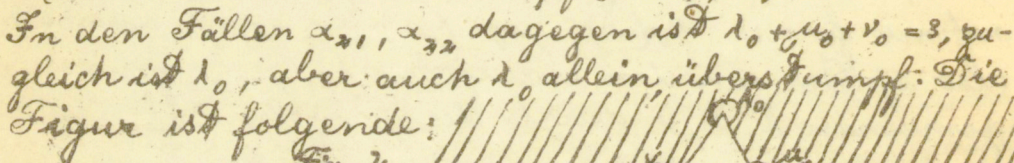 In den Fällen α₂₁, α₂₂ dagegen ist λ₀ + μ₀ + ν₀ = 3, zu-
gleich ist λ₀, aber auch λ₀ allein, überstumpf. Die
Figur ist folgende: